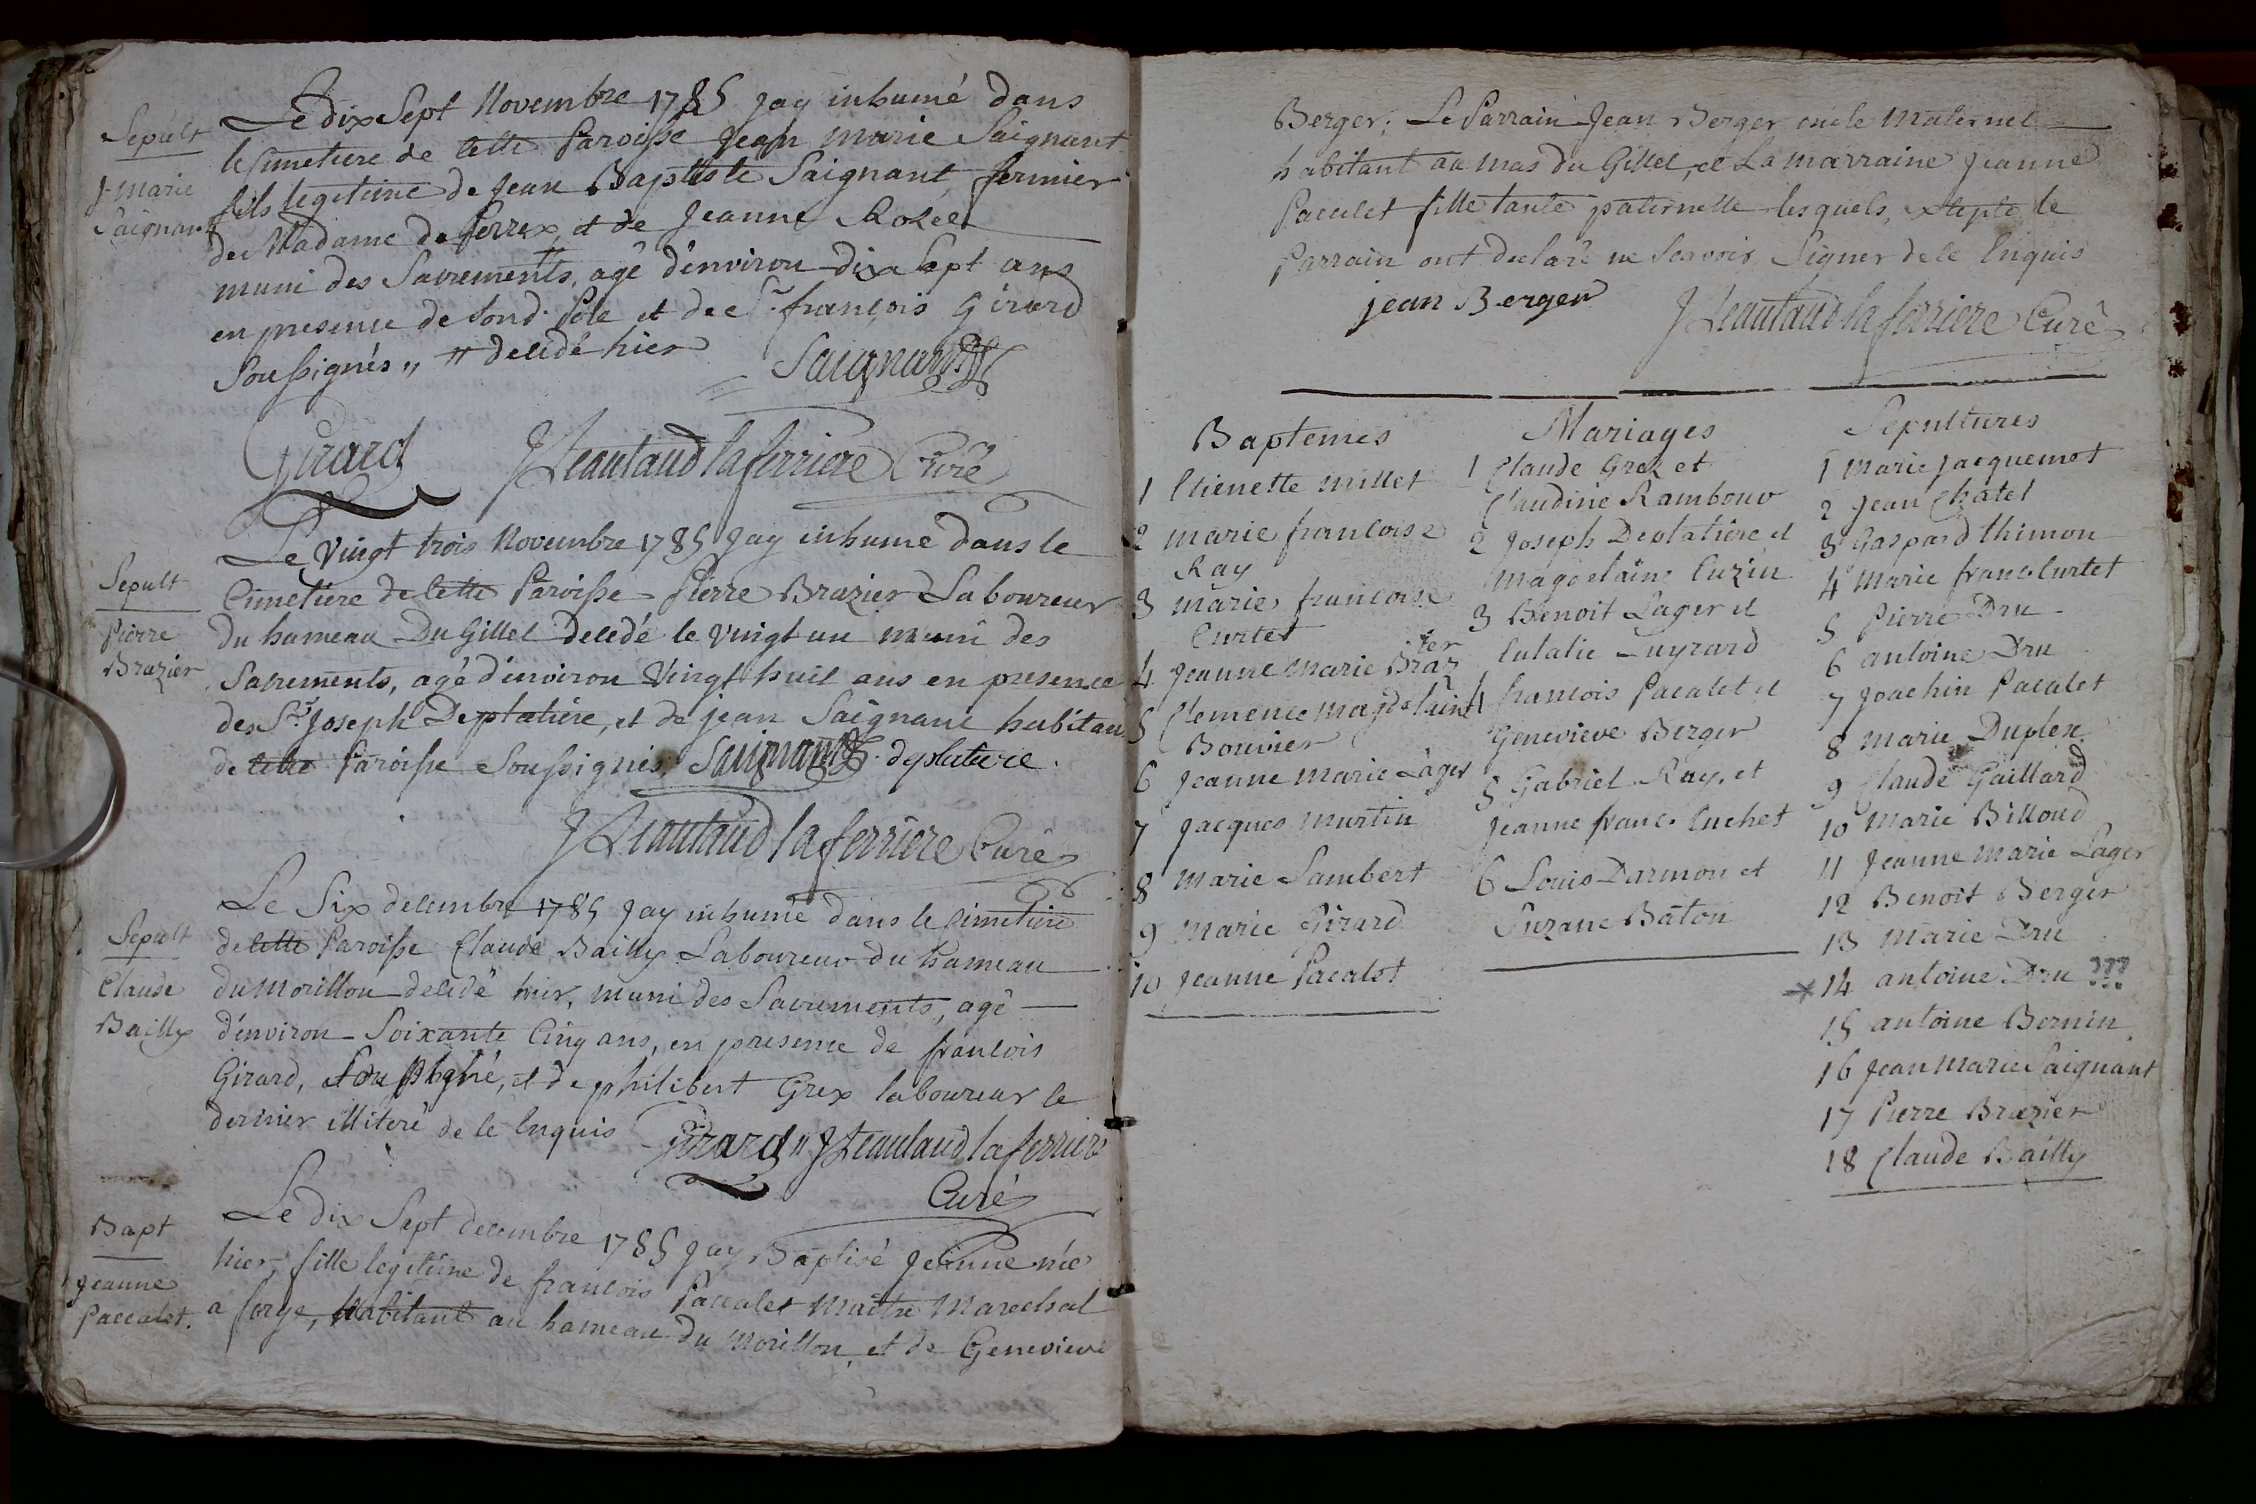 Sepult
J. marie
Saignant
Le dix Sept Novembre 1785 Jay inhumé dans
le Cimetiere de Cette Paroisse Jean marie Saignant
fils legitime de Jean Baptiste Saignant fermier
de Madame de ferrex, et de Jeanne Rozée
muni des Sacrements, agé d'environ dix Sept ans
en presence de Sond. Pole et de Sr. françois Girard
Soussignés „ # decedé hier Saignant
Girard JLeautaud laferriere Curé
Sepult
Pierre
Brazier
Le vingt trois Novembre 1785 Jay inhumé dans le
Cimetiere de Cette Paroisse Pierre Brazier Laboureur
du hameau Du Gillet decedé le vingt un muni des
Sacrements, agé d'environ vingt huit ans en presence
des Srs. Joseph Deplatiere, et de jean Saignant habitan
de Cette Paroisse Soussignés. Saignant deplatiere.
JLeautaud laferriere Curé
Sepult
Claude
Bailly
Le Six decembre 1785 Jay inhumé dans le Cimetiere
de Cette Paroisse Claude Bailly Laboureur du hameau
du Morillon decedé hier, muni des Sacrements, agé
d'environ Soixante Cinq ans, en presence de francois
Girard, Soussigné, et de philibert Grex laboureur le
dernier illiteré de le Enquis Girard „ JLeautaud laferriere
Curé
Bapt
Jeanne
Paccalet.
Le dix Sept decembre 1785 Jay Baptisé Jeanne née
hier, fille legitime de francois Paccalet Maître Marechal
a forge, habitant au hameau du Morillon, et de Genevieve
Berger; Le Parrain Jean Berger oncle Maternel
habitant au mas du Gillet, et La marraine Jeanne
Pacalet fille tante paternelle lesquels, excepté le
Parrain ont declaré ne Scavoir Signer de le Enquis
jean Berger JLeautaud la ferriere Curé
Baptemes
1 Etienette millet
2 marie francoise
Ray
3 marie francoise
Curtet
4 Jeanne marie Brazier
5 Clemence magdelaine
Bouvier
6 Jeanne marie Lager
7 Jacques martin
8 marie Lambert
9 marie Girard
10 Jeanne Pacalet
Mariages
1 Claude Grex et
Claudine Rambouv
2 Joseph Deplatiere et
magdelaine Cuzin
3 Benoit Lager et
Eulalie Luyrard
4 francois Pacalet et
Genevieve Berger
5 Gabriel Ray, et
Jeanne franc. Cuchet
6 Louis Darmon et
Suzane Bâton
Sepultures
1 marie Jacquemet
2 Jean Chatel
3 Gaspard thimon
4 marie franc. Curtet
5 Pierre Dru
6 antoine Dru
7 Joachin Pacalet
8 marie Duplex
9 Claude Gaillard
10 marie Billoud
11 Jeanne marie Lager
12 Benoit Berger
13 marie Dru
14 antoine Dru ???
15 antoine Bernin
16 Jean marie Saignant
17 Pierre Brazier
18 Claude Bailly